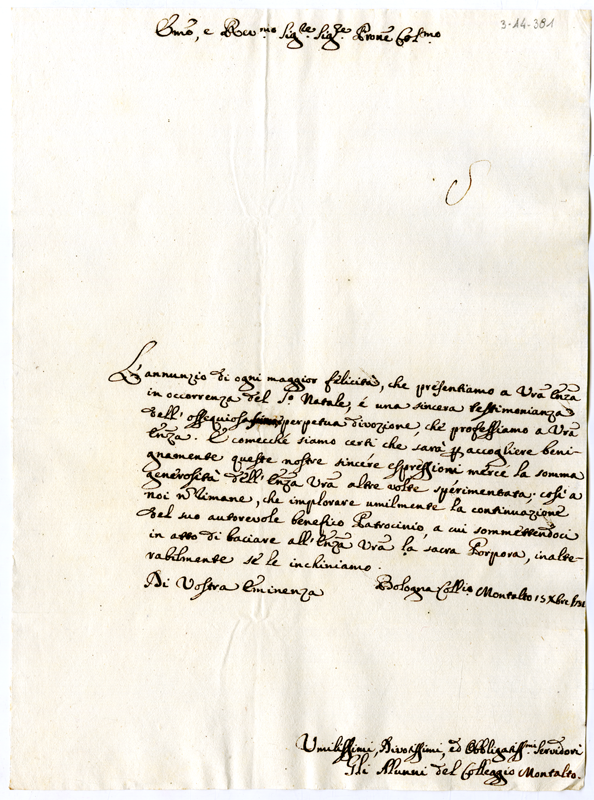 3-14-381
Emo, e Rev.mo Sig.re Sig.re Prone Col.mo
L'annunzio di ogni maggior felicità, che presentiamo a Vrã Enza
in occorrenza del S.o Natale, é una sincera testimonianza
dell'ossequiosa perpetua divozione, che professiamo a Vrã
Enza. E comecché siamo certi che sarà p accogliere beni-
gnamente queste nostre sincére espressioni mercé la somma
generosità dell'Enza Vrã altre volte sperimentata; cosí a
noi ñ rimane, che implorare umilmente la continuazione
del suo autorevole benefico Patrocinio, a cui sommettendoci
in atto di baciare all'Enza Vrã la sacra Porpora, inalte-
rabilmente se le inchiniamo.
Di Vostra Eminenza
Bologna Coll.io Montalto 15 Xbre
Umilissimi, Divotissimi, ed Obbligatiss.mi Servidori
Gli Alunni del Colleggio Montalto.